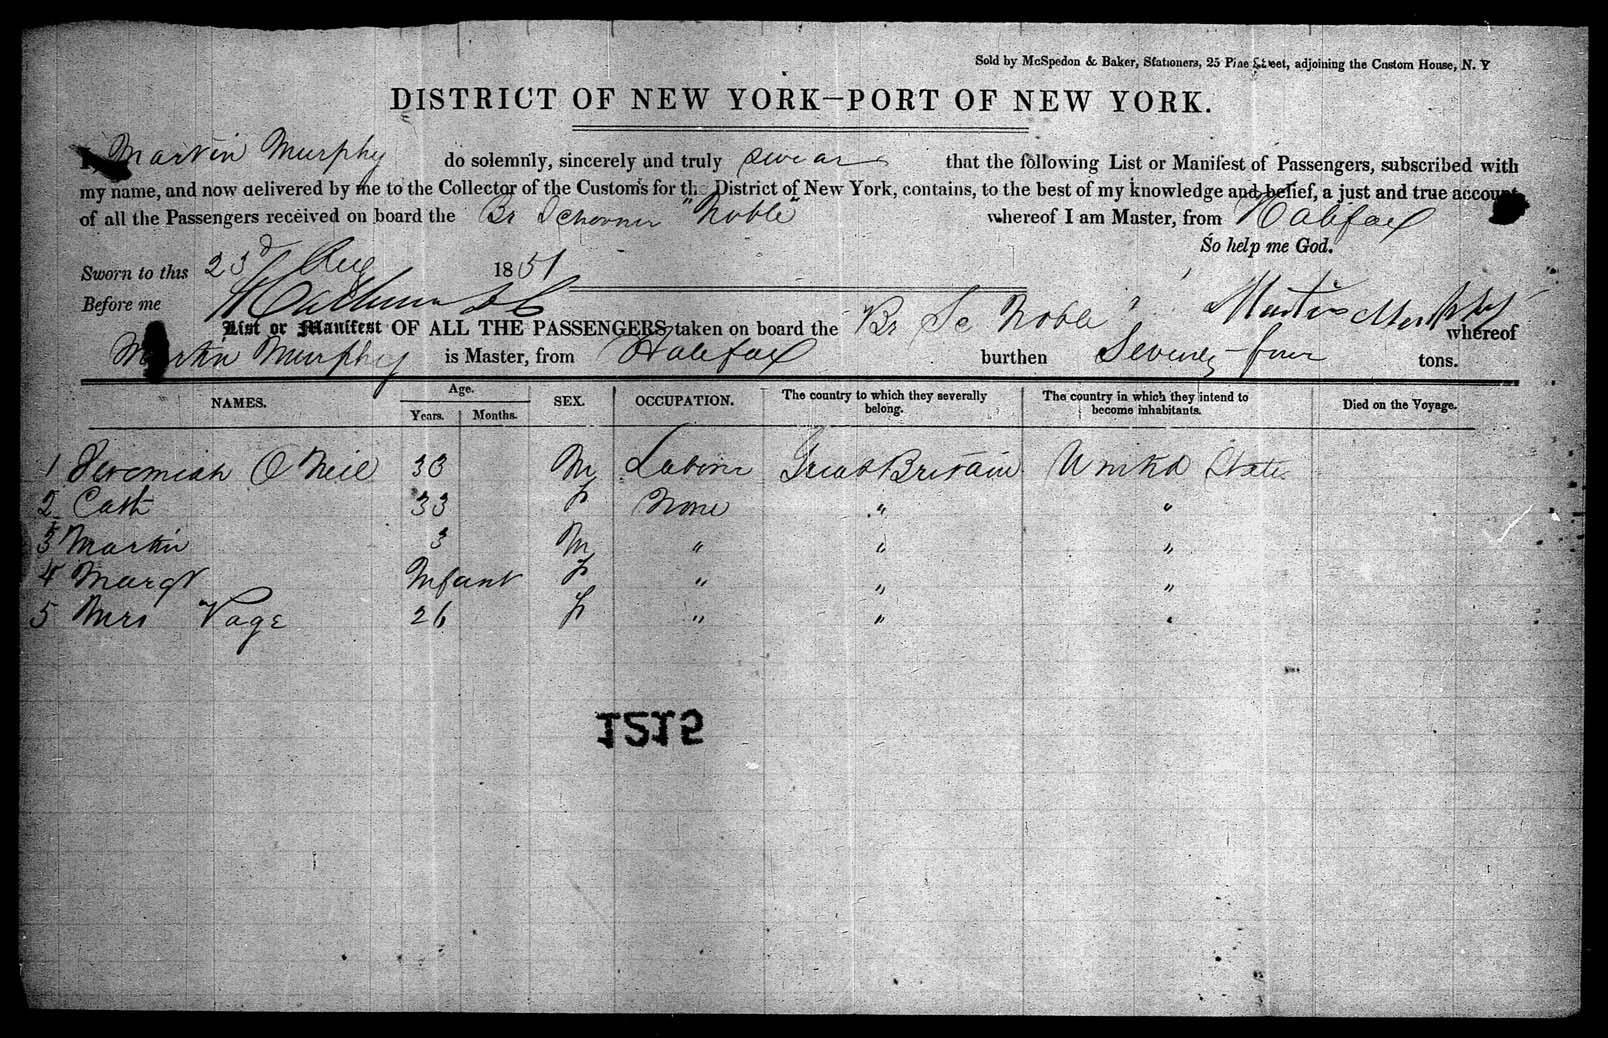 Sold by McSpedon & Baker, Stationers, 25 Pine Street, adjoining the Custom House, N. Y
DISTRICT OF NEW YORK—PORT OF NEW YORK.
I, Martin Murphy do solemnly, sincerely and truly swear that the following List or Manifest of Passengers, subscribed with
my name, and now delivered by me to the Collector of the Customs for the District of New York, contains, to the best of my knowledge and belief, a just and true account
of all the Passengers received on board the Br Schooner "Noble" whereof I am Master, from Halifax
So help me God.
Sworn to this 23d Aug 1851
Before me
Martin Murphy
List or Manifest OF ALL THE PASSENGERS taken on board the Br Sc Noble " whereof
Martin Murphy is Master, from Halifax burthen Seventy-four tons.
NAMES. Age. Years. Months. SEX. OCCUPATION. The country to which they severally belong. The country in which they intend to become inhabitants. Died on the Voyage.
1 Jeremiah O Neil 33 M Labourer Great Britain United States
2 Cath 33 F None " "
3 Martin 3 M " " "
4 Margt Infant F " " "
5 Mrs Page 26 F " " "
1215